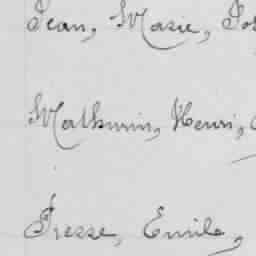 Jean, Marie, Jos
Mathurin, Henri,
Presse, Emile,